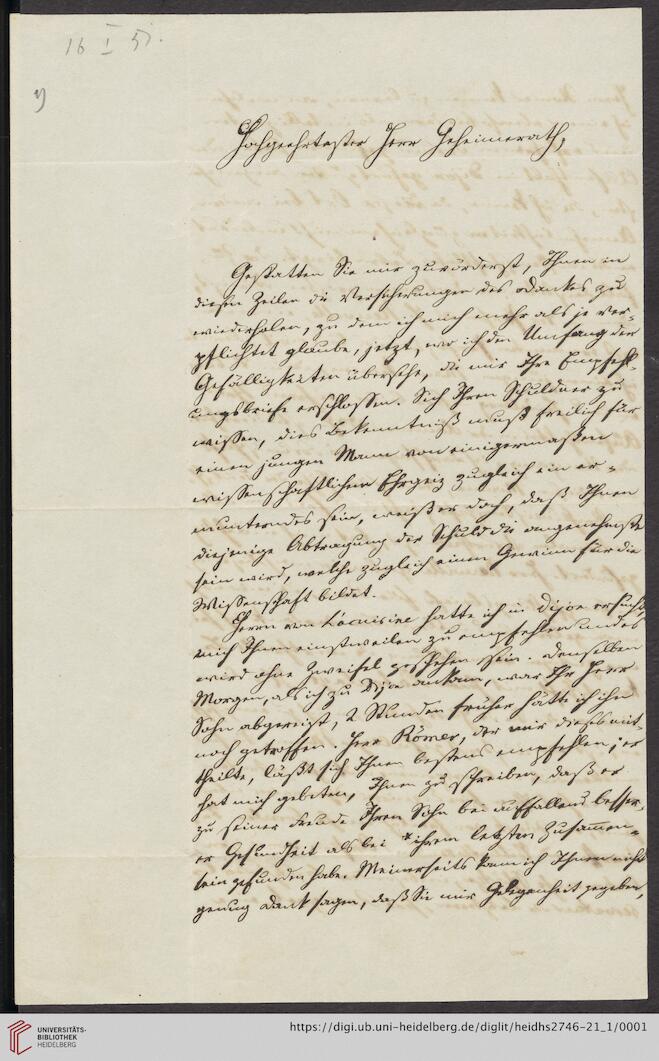 16 I 51.
Hochgeehrtester Herr Geheimerath,
Gestatten Sie mir zuvörderst, Ihnen in
diesen Zeilen die Versicherungen des Dankes zu
wiederholen, zu dem ich mich mehr als je ver-
pflichtet glaube, jetzt, wo ich den Umfang der
Gefälligkeiten übersehe, die mir Ihre Empfehl-
ungsbriefe erschlossen. Sich Ihren Schuldner zu
wissen, dies Bekenntniß muß freilich für
einen jungen Mann von einigermaßen
wissenschaftlichem Ehrgeiz zugleich ein er-
munterndes sein, weiß er doch, daß Ihnen
diejenige Abtragung der Schuld die angenehmste
sein wird, welche zugleich einen Gewinn für die
Wissenschaft bildet.
Herrn von Lacuisine hatte ich in Dijon ersucht,
mich Ihnen einstweilen zu empfehlen und es
wird ohne Zweifel geschehen sein. Denselben
Morgen, als ich zu Dijon ankam, war Ihr Herr
Sohn abgereist, 2 Stunden früher hätte ich ihn
noch getroffen. Herr Römer, der mir dieses mit-
theilte, läßt sich Ihnen bestens empfehlen; er
hat mich gebeten, Ihnen zu schreiben, daß er
zu seiner Freude Ihren Sohn bei auffallend besser-
er Gesundheit als bei ihrem letzten Zusammen-
sein gefunden habe. Meinerseits kann ich Ihnen nicht
genug Dank sagen, daß Sie mir Gelegenheit gegeben,
UNIVERSITÄTS-
BIBLIOTHEK
HEIDELBERG
https://digi.ub.uni-heidelberg.de/diglit/heidhs2746-21_1/0001